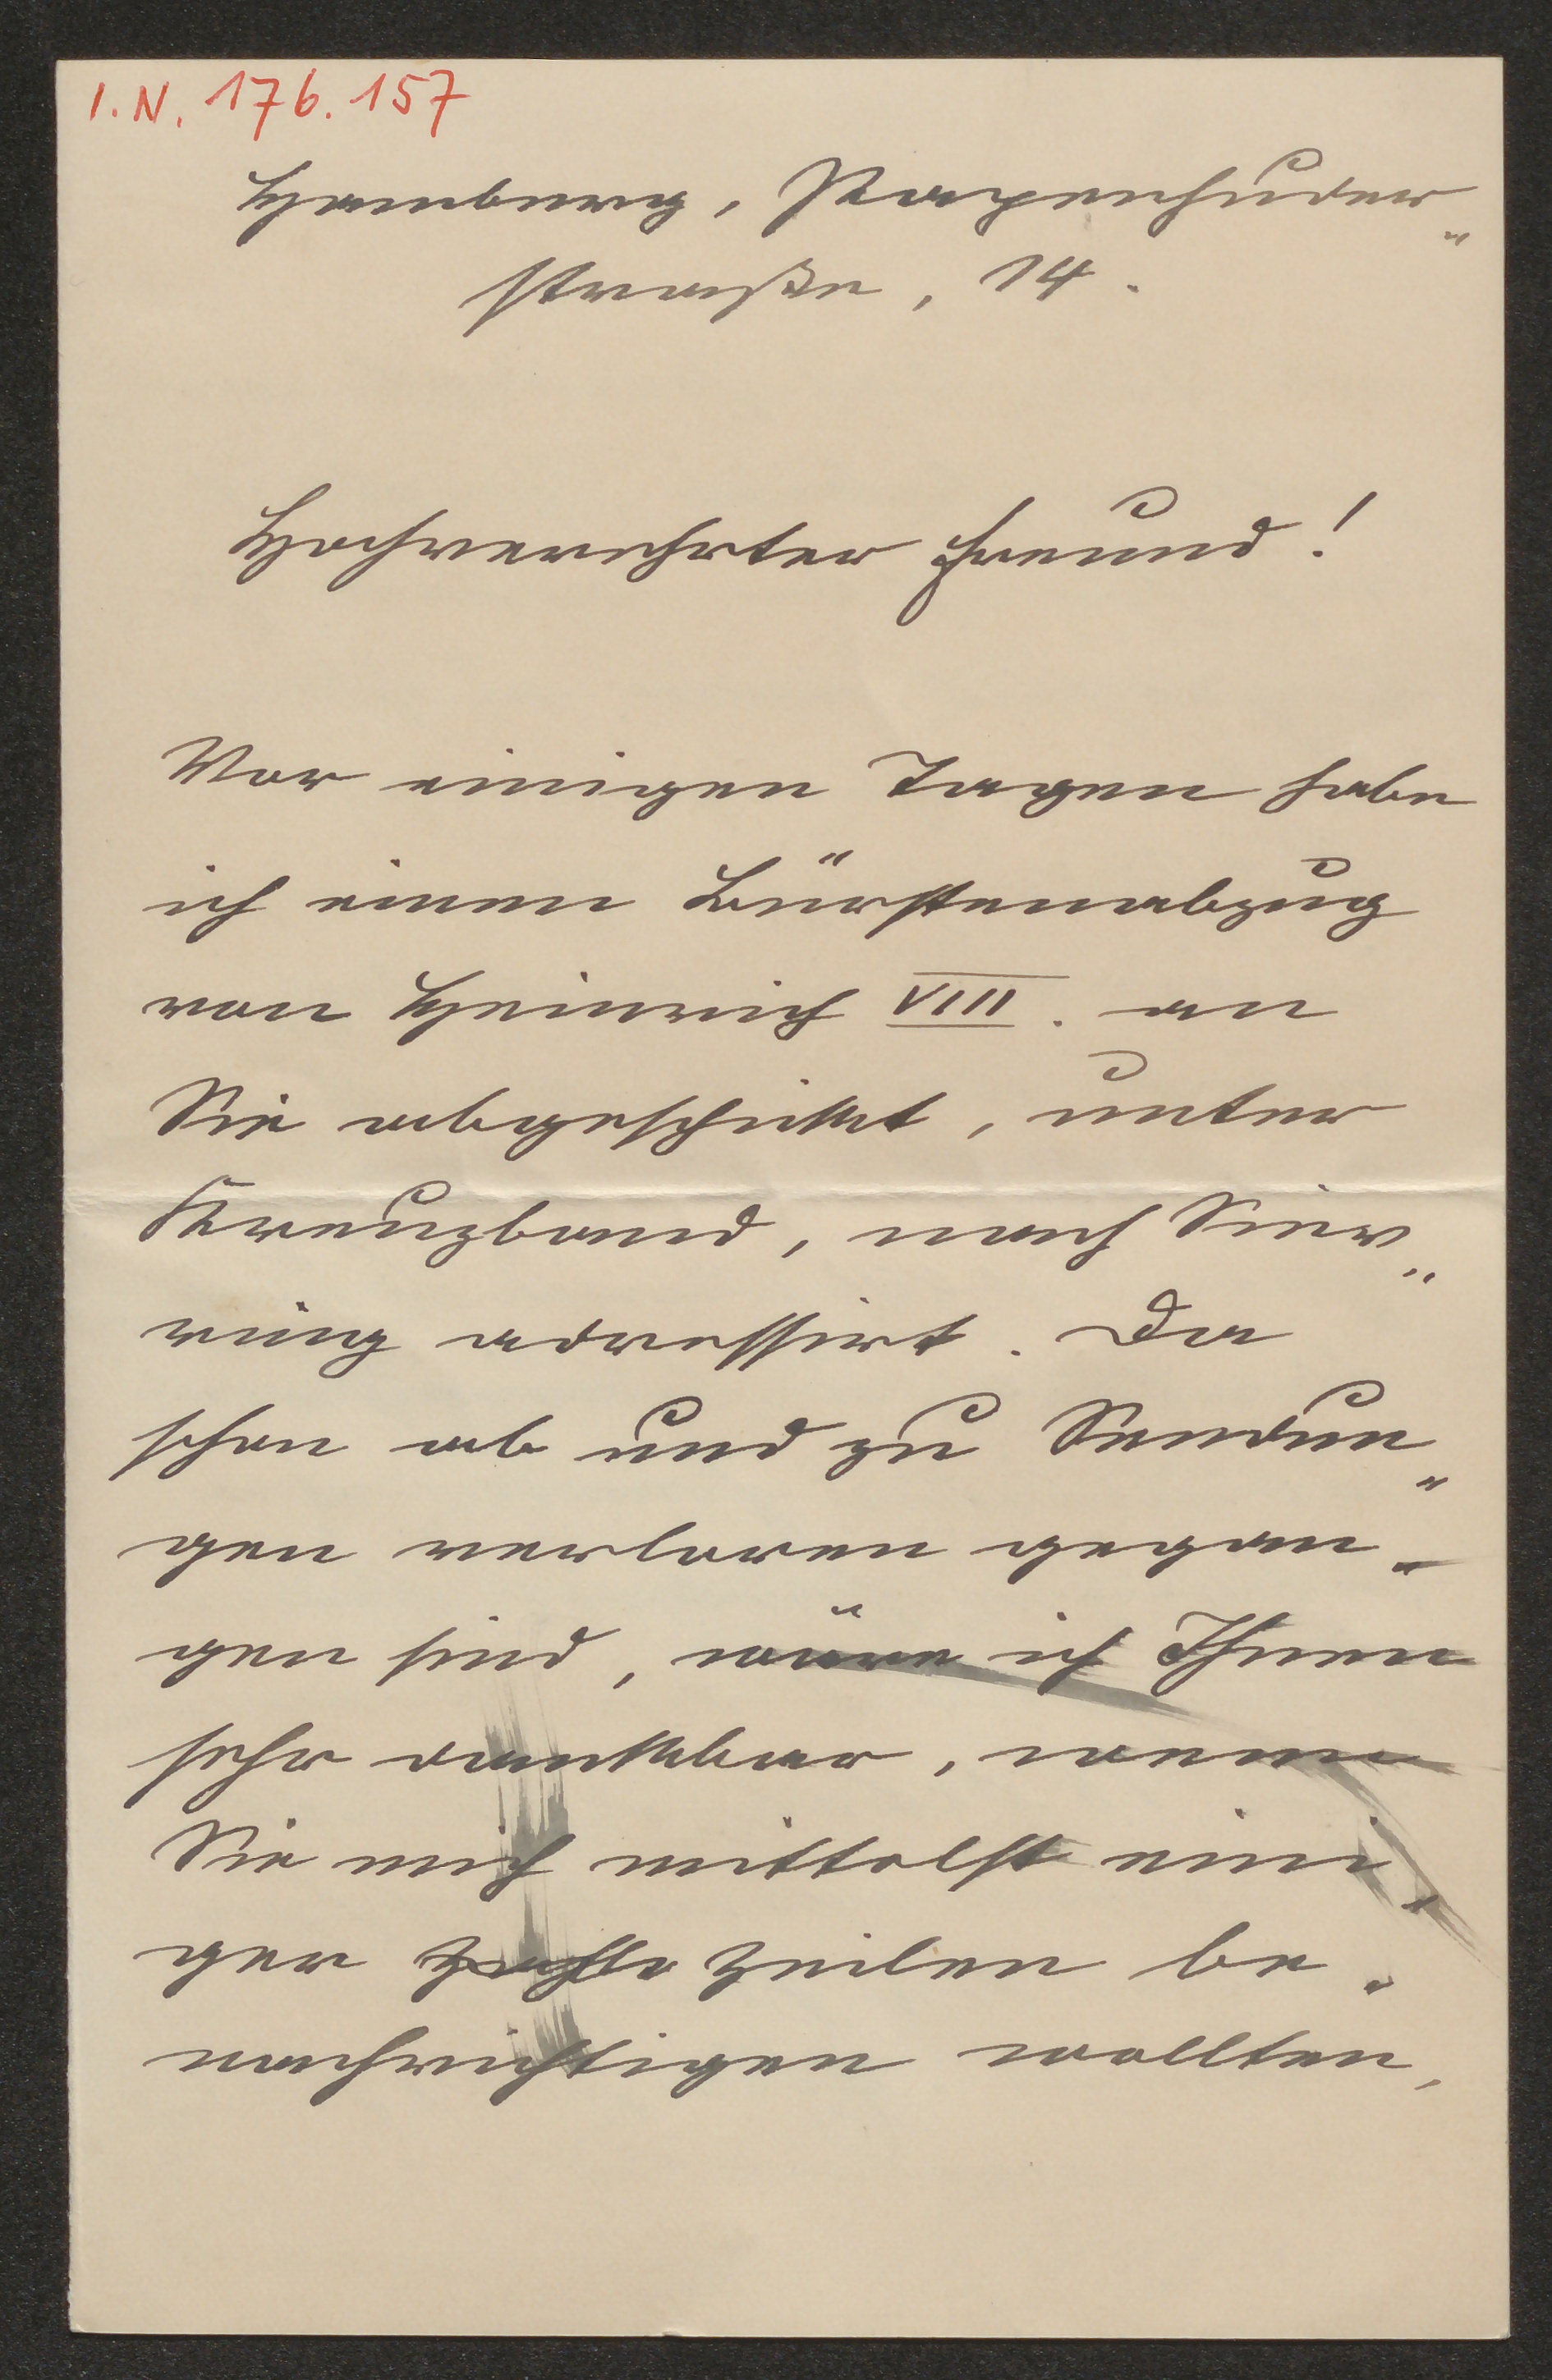 I.N. 176.157
Hamburg, Papenhuder„
straße, 14.
Hochverehrter Freund!
Vor einigen Tagen habe
ich einen Bürstenabzug
von Heinrich VIII. an
Sie abgeschickt, unter
Kreuzband, nach Sier„
ning adressirt. Da
schon ab und zu Sendun„
gen verloren gegan„
gen sind, wäre ich Ihnen
sehr dankbar, wenn
Sie mich mittelst eini„
ger Zeilen be„
nachrichtigen wollten,